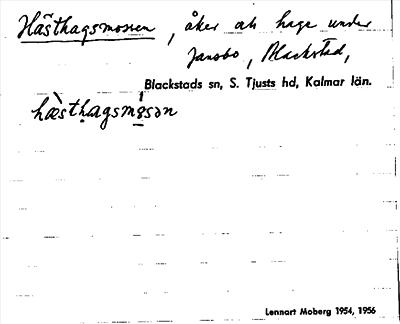 Hästhagsmossen, åker och hage under
Jansbo, Blackstad,
Blackstads sn, S. Tjusts hd, Kalmar län.
hæ̀sthagsmósən
Lennart Moberg 1954, 1956